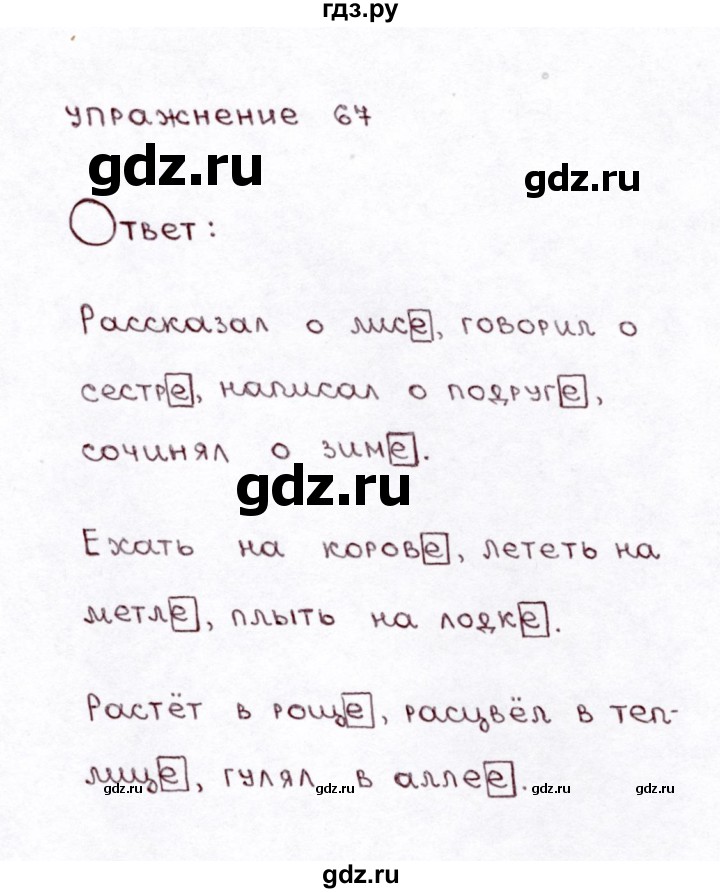 гдз.ру
упражнение 67
gdz.ru
gdz.ru
Ответ:
Рассказал о лисе, говорил о
сестре, написал о подруге,
сочинял о зиме.
gdz.ru
Ехать на корове, лететь на
метле, плыть на лодке.
Растёт в роще, расцвёл в теп-
лице, гулял в аллее.
gdz.ru gdz.ru gdz.ru gdz.ru
gdz.ru